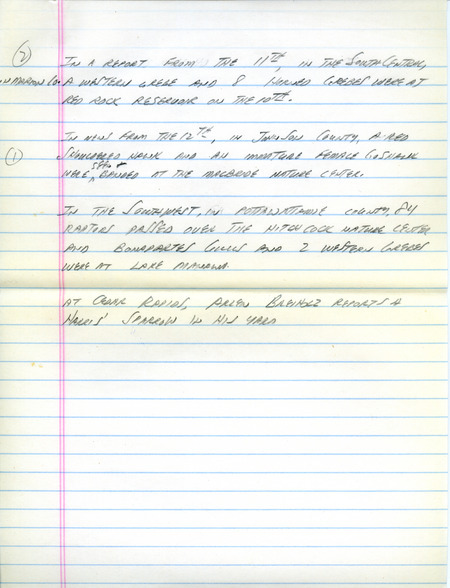 (2) IN A REPORT FROM THE 11TH, IN THE SOUTH CENTRAL,
IN MARION CO. A WESTERN GREBE AND 8 HORNED GREBES WERE AT
RED ROCK RESERVOIR ON THE 10TH.
IN NEWS FROM THE 12TH, IN JOHNSON COUNTY, A RED
(1) SHOULDERED HAWK AND AN IMMATURE FEMALE GOSHAWK
WERE BANDED AT THE MACBRIDE NATURE CENTER.
IN THE SOUTHWEST, IN POTTAWATTAMIE COUNTY, 84
RAPTORS PASSED OVER THE HITCHCOCK NATURE CENTER
AND BONAPARTES GULLS AND 2 WESTERN GREBES
WERE AT LAKE MANAWA.
AT CEDAR RAPIDS, ARLEN BREIHOLZ REPORTS A
HARRIS' SPARROW IN HIS YARD